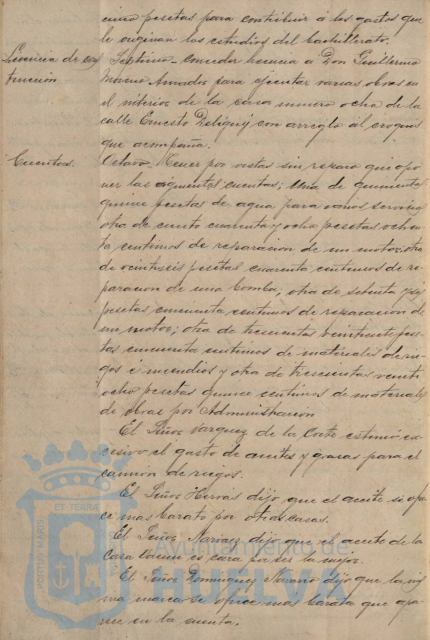 cinco pesetas para contribuir á los gastos que
le originan los estudios del bachillerato.
Licencia de cons
trucción
Septimo. Conceder licencia a Don Guillermo
Moreno Amador para ejecutar varias obras en
el interior de la casa numero ocho de la
calle Ernesto Deligny con arreglo al croquis
que acompaña.
Cuentas.
Octavo. Tener por vistas sin reparo que opo
ner las siguientes cuentas; Una de quinientas
quince pesetas de agua para varios servicios
otra de ciento cuarenta y ocho pesetas ochen
ta centimos de reparacion de un motor; otra
de veintiseis pesetas cuarenta centimos de re
paracion de una bomba; otra de setenta y seis
pesetas cincuenta centimos de reparacion de
un motor; otra de trescientas veintisiete pese
tas cincuenta centimos de materiales de rie
gos é incendios y otra de trescientas veinti
ocho pesetas quince centimos de materiales
de obras por Administracion
El Señor Vazquez de la Corte estimó ex
cesivo el gasto de aceites y grasas para el
camión de riegos.
El Señor Hervas dijo que el aceite se ofre
ce mas barato por otras casas.
El Señor Narvaez dijo que el aceite de la
Casa es cara por ser la mejor.
El Señor Dominguez Navarro dijo que la mis
ma marca se ofrece mas barata que apa
rece en la cuenta.
PORTUS MARIS ET TERRÆ
Ayuntamiento de
HUELVA